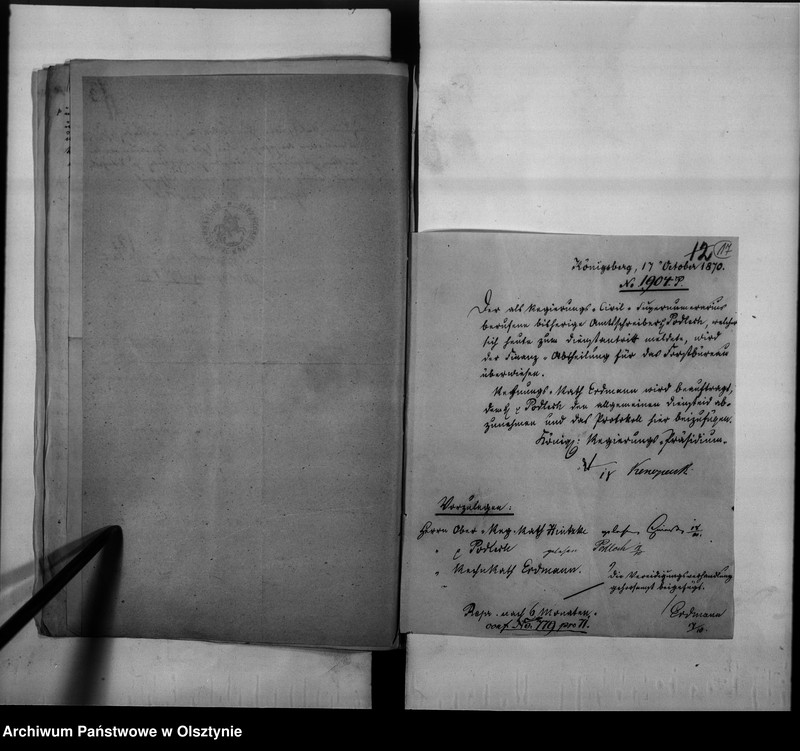 12 17
Königsberg, 17 October 1870.
No 1904 P.
Der als Regierungs-Civil-Supernumerarius
berufene bisherige Amtsschreiber Podlech, welcher
sich heute zum Dienstantritt meldete, wird
der Finanz-Abtheilung für das Forstbüreau
überwiesen.
Rechnungs-Rath Erdmann wird beauftragt,
dem p Podlech den allgemeinen Diensteid ab-
zunehmen und das Protokoll hier beizufügen.
Königl: Regierungs-Präsidium.
Vorzulegen:
Herrn Ober-Reg-Rath gelesen
" p Podlech gelesen Podlech
" Rech Rath Erdmann.
Die Vereidigungsverhandlung
gehorsamst beigefügt.
Erdmann
Repr. nach 6 Monaten.
conf No. 779 pro 71.
Archiwum Państwowe w Olsztynie